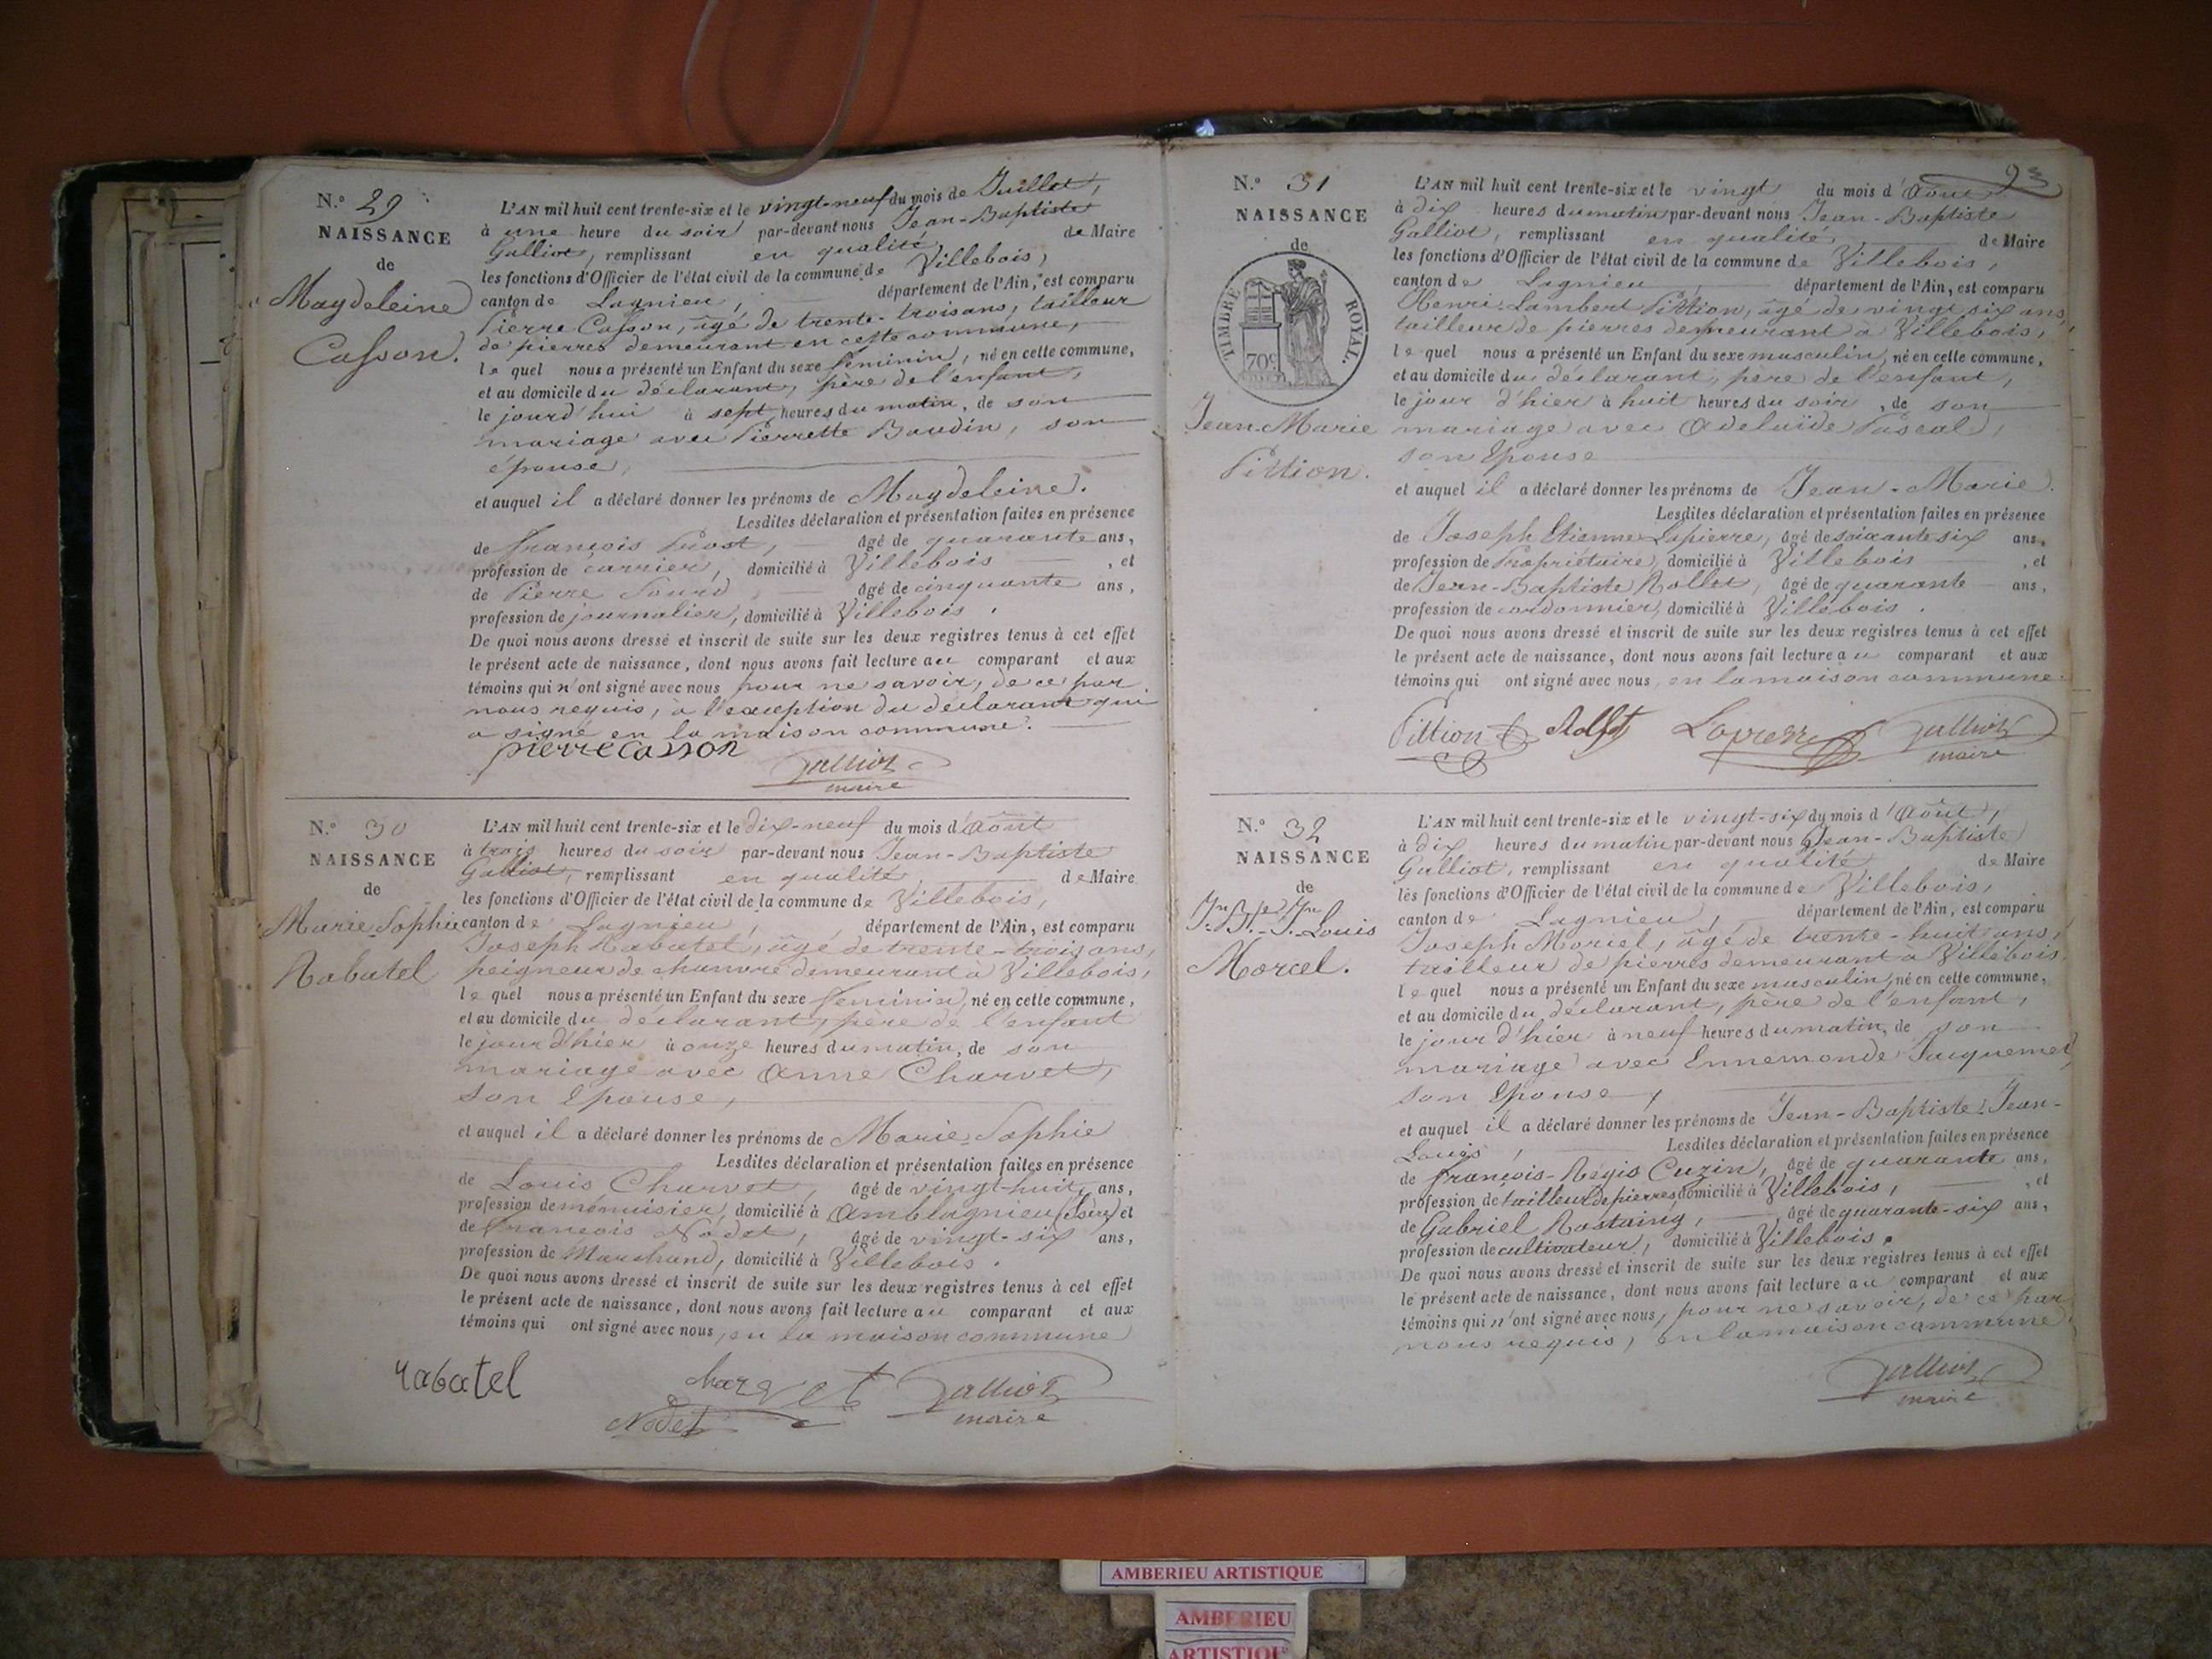 N.° 29
NAISSANCE
de
Magdeleine
Casson.
L'AN mil huit cent trente-six et le vingt-neuf du mois de Juillet,
à une heure du soir par-devant nous Jean-Baptiste
Galliot, remplissant en qualité de Maire
les fonctions d'Officier de l'état civil de la commune de Villebois,
canton de Lagnieu, département de l'Ain, est comparu
Pierre Casson, âgé de trente-trois ans, tailleur
de pierres demeurant en cette commune,
le quel nous a présenté un Enfant du sexe féminin, né en cette commune,
et au domicile du déclarant, père de l'enfant,
le jourd'hui à sept heures du matin, de son
mariage avec Pierrette Baudin, son
épouse,
et auquel il a déclaré donner les prénoms de Magdeleine.
Lesdites déclaration et présentation faites en présence
de françois Prost, âgé de quarante ans,
profession de carrier, domicilié à Villebois , et
de Pierre Sourd âgé de cinquante ans,
profession de journalier, domicilié à Villebois.
De quoi nous avons dressé et inscrit de suite sur les deux registres tenus à cet effet
le présent acte de naissance, dont nous avons fait lecture au comparant et aux
témoins qui n'ont signé avec nous pour ne savoir, de ce par
nous requis, à l'exception du déclarant qui
a signé en la maison commune.
pierre casson
Galliot
maire
N.° 30
NAISSANCE
de
Marie Sophie
Rabatel
L'AN mil huit cent trente-six et le dix-neuf du mois d'Août
à trois heures du soir par-devant nous Jean-Baptiste
Galliot, remplissant en qualité de Maire
les fonctions d'Officier de l'état civil de la commune de Villebois,
canton de Lagnieu, département de l'Ain, est comparu
Joseph Rabatel, âgé de trente-trois ans,
peigneur de chanvre demeurant à Villebois,
le quel nous a présenté un Enfant du sexe féminin, né en cette commune,
et au domicile du déclarant, père de l'enfant
le jour d'hier à onze heures du matin, de son
mariage avec Anne Charvet,
son Epouse,
et auquel il a déclaré donner les prénoms de Marie Sophie
Lesdites déclaration et présentation faites en présence
de Louis Charvet, âgé de vingt-huit ans,
profession de menuisier, domicilié à Amblagnieu (Isère) et
de françois Nodet, âgé de vingt-six ans,
profession de Marchand, domicilié à Villebois.
De quoi nous avons dressé et inscrit de suite sur les deux registres tenus à cet effet
le présent acte de naissance, dont nous avons fait lecture au comparant et aux
témoins qui ont signé avec nous, en la maison commune
rabatel
charvet
Nodet
Galliot
maire
93
N.° 31
NAISSANCE
de
TIMBRE ROYAL.
70c
Jean-Marie
Pittion.
L'AN mil huit cent trente-six et le vingt du mois d'Août
à dix heures du matin par-devant nous Jean-Baptiste
Galliot, remplissant en qualité de Maire
les fonctions d'Officier de l'état civil de la commune de Villebois,
canton de Lagnieu, département de l'Ain, est comparu
Henri-Lambert Pittion, âgé de vingt six ans,
tailleur de pierres demeurant à Villebois,
le quel nous a présenté un Enfant du sexe masculin, né en cette commune,
et au domicile du déclarant, père de l'enfant,
le jour d'hier à huit heures du soir, de son
mariage avec Adelaïde Pascal,
son Epouse
et auquel il a déclaré donner les prénoms de Jean-Marie.
Lesdites déclaration et présentation faites en présence
de Joseph Etienne Lapierre, âgé de soixante six ans,
profession de Propriétaire, domicilié à Villebois , et
de Jean-Baptiste Rollet, âgé de quarante ans,
profession de cordonnier, domicilié à Villebois.
De quoi nous avons dressé et inscrit de suite sur les deux registres tenus à cet effet
le présent acte de naissance, dont nous avons fait lecture au comparant et aux
témoins qui ont signé avec nous, en la maison commune.
Pittion Rollet Lapierre Galliot
maire
N.° 32
NAISSANCE
de
Jn. Bte. Jn. Louis
Morcel.
L'AN mil huit cent trente-six et le vingt-six du mois d'Août,
à dix heures du matin par-devant nous Jean-Baptiste
Galliot, remplissant en qualité de Maire
les fonctions d'Officier de l'état civil de la commune de Villebois,
canton de Lagnieu, département de l'Ain, est comparu
Joseph Morcel, âgé de trente-huit ans,
tailleur de pierres demeurant à Villebois,
le quel nous a présenté un Enfant du sexe masculin, né en cette commune,
et au domicile du déclarant, père de l'enfant,
le jour d'hier à neuf heures du matin, de son
mariage avec Ennemonde Jacquemet,
son Epouse,
et auquel il a déclaré donner les prénoms de Jean-Baptiste Jean-
Louis, Lesdites déclaration et présentation faites en présence
de françois-Régis Cuzin, âgé de quarante ans,
profession de tailleur de pierres domicilié à Villebois, , et
de Gabriel Rostaing, âgé de quarante-six ans,
profession de cultivateur, domicilié à Villebois.
De quoi nous avons dressé et inscrit de suite sur les deux registres tenus à cet effet
le présent acte de naissance, dont nous avons fait lecture au comparant et aux
témoins qui n'ont signé avec nous, pour ne savoir, de ce par
nous requis, en la maison commune
Galliot
maire
AMBERIEU ARTISTIQUE
AMBERIEU
ARTISTIQUE